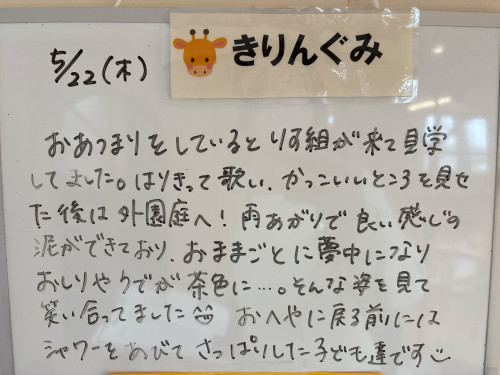 5/22(木)
きりんぐみ
おあつまりをしているとりす組が来て見学
してました。はりきって歌い、かっこいいところを見せ
た後は外園庭へ!雨あがりで良い感じの
泥ができており、おままごとに夢中になり
おしりやうでが茶色に…。そんな姿を見て
笑い合ってました
おへやに戻る前には
シャワーをあびてさっぱりした子ども達です